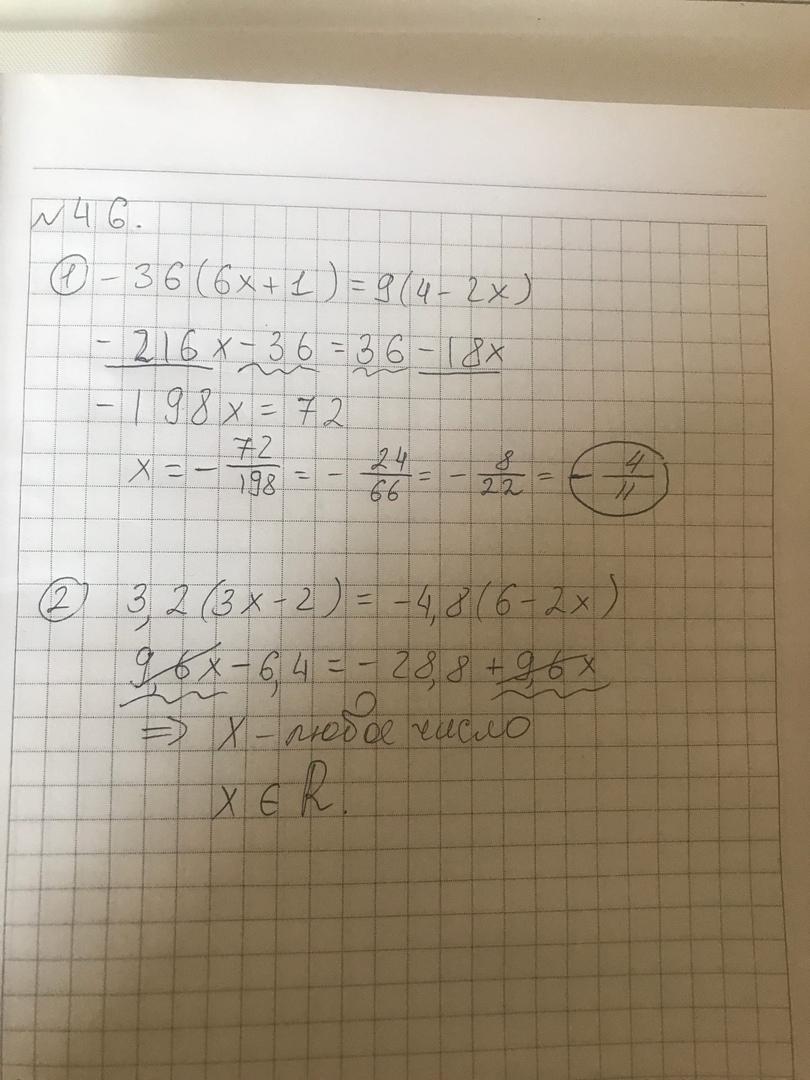 №46.
① -36(6x+1)=9(4-2x)
-216x-36=36-18x
-198x=72
x=-72/198=-24/66=-8/22=-4/11
② 3,2(3x-2)=-4,8(6-2x)
9,6x-6,4=-28,8+9,6x
⇒ x-любое число
x∈R.